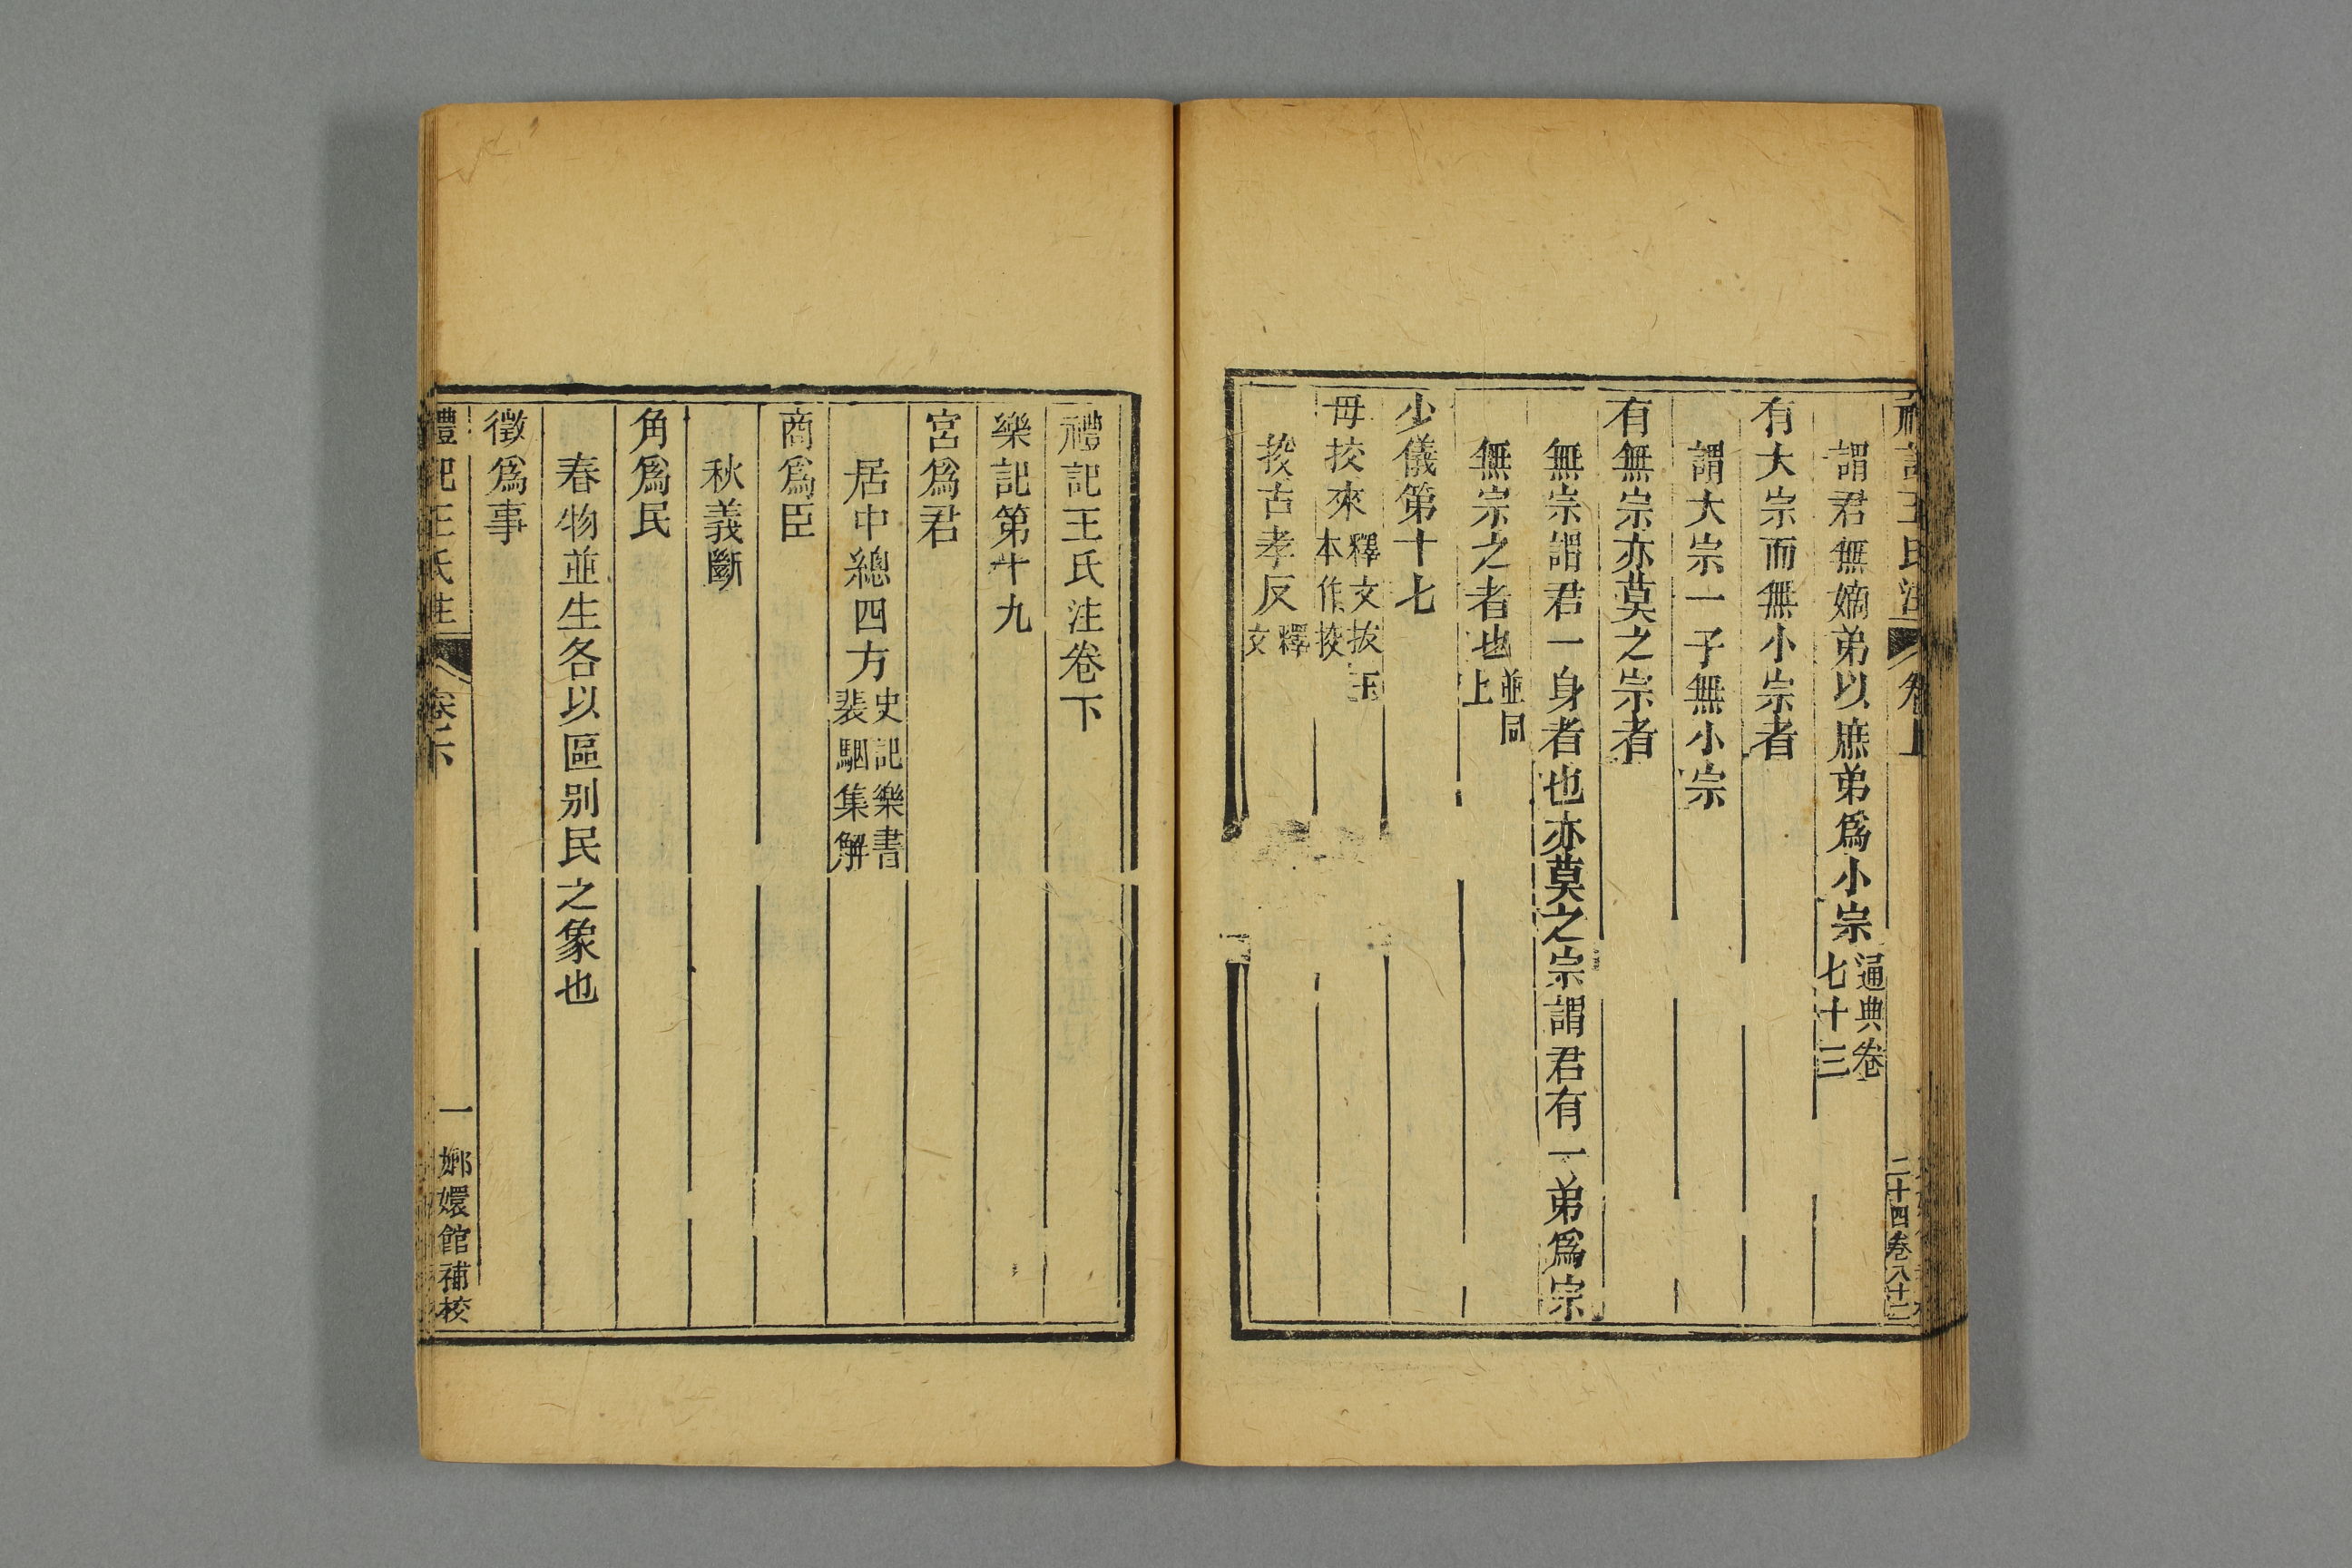 禮記王氏注 卷上 二十四卷八十二
謂君無嫡弟以庶弟爲小宗通典卷七十三
有大宗而無小宗者
謂大宗一子無小宗
有無宗亦莫之宗者
無宗謂君一身者也亦莫之宗謂君有一弟爲宗
無宗之者也並同上
少儀第十七
毋挍來釋文拔王本作挍
挍古孝反釋文
禮記王氏注卷下
樂記第十九
宮爲君
居中總四方史記樂書裴駰集解
商爲臣
秋義斷
角爲民
春物並生各以區别民之象也
徵爲事
禮記王氏注 卷下 一 嫏嬛館補校